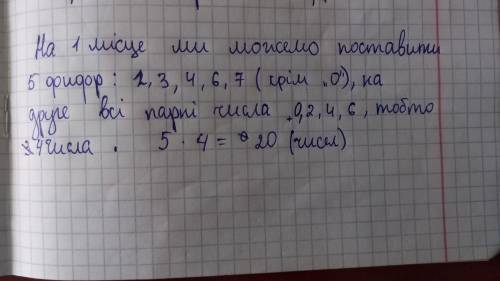 На 1 місце ми можемо поставити
5 цифор: 2, 3, 4, 6, 7 (крім "0"), на
друге всі парні числа 0,2,4,6, тобто
4 числа. 5 · 4 = 20 (чисел)